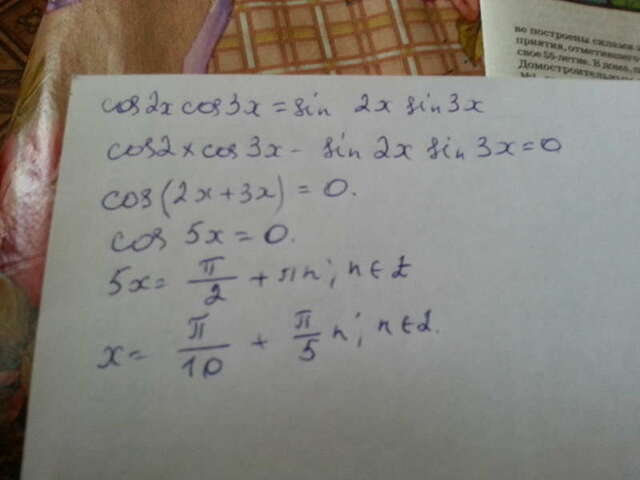 ве построены силами
приятия, отметившего
свое 50-летие. В дома
Домостроительны
cos2x cos3x = sin 2x sin3x
cos2x cos 3x - sin 2x sin 3x = 0
cos(2x+3x) = 0.
cos 5x = 0.
5x = π/2 + πn; n ∈ Z
x = π/10 + π/5 n; n ∈ Z.